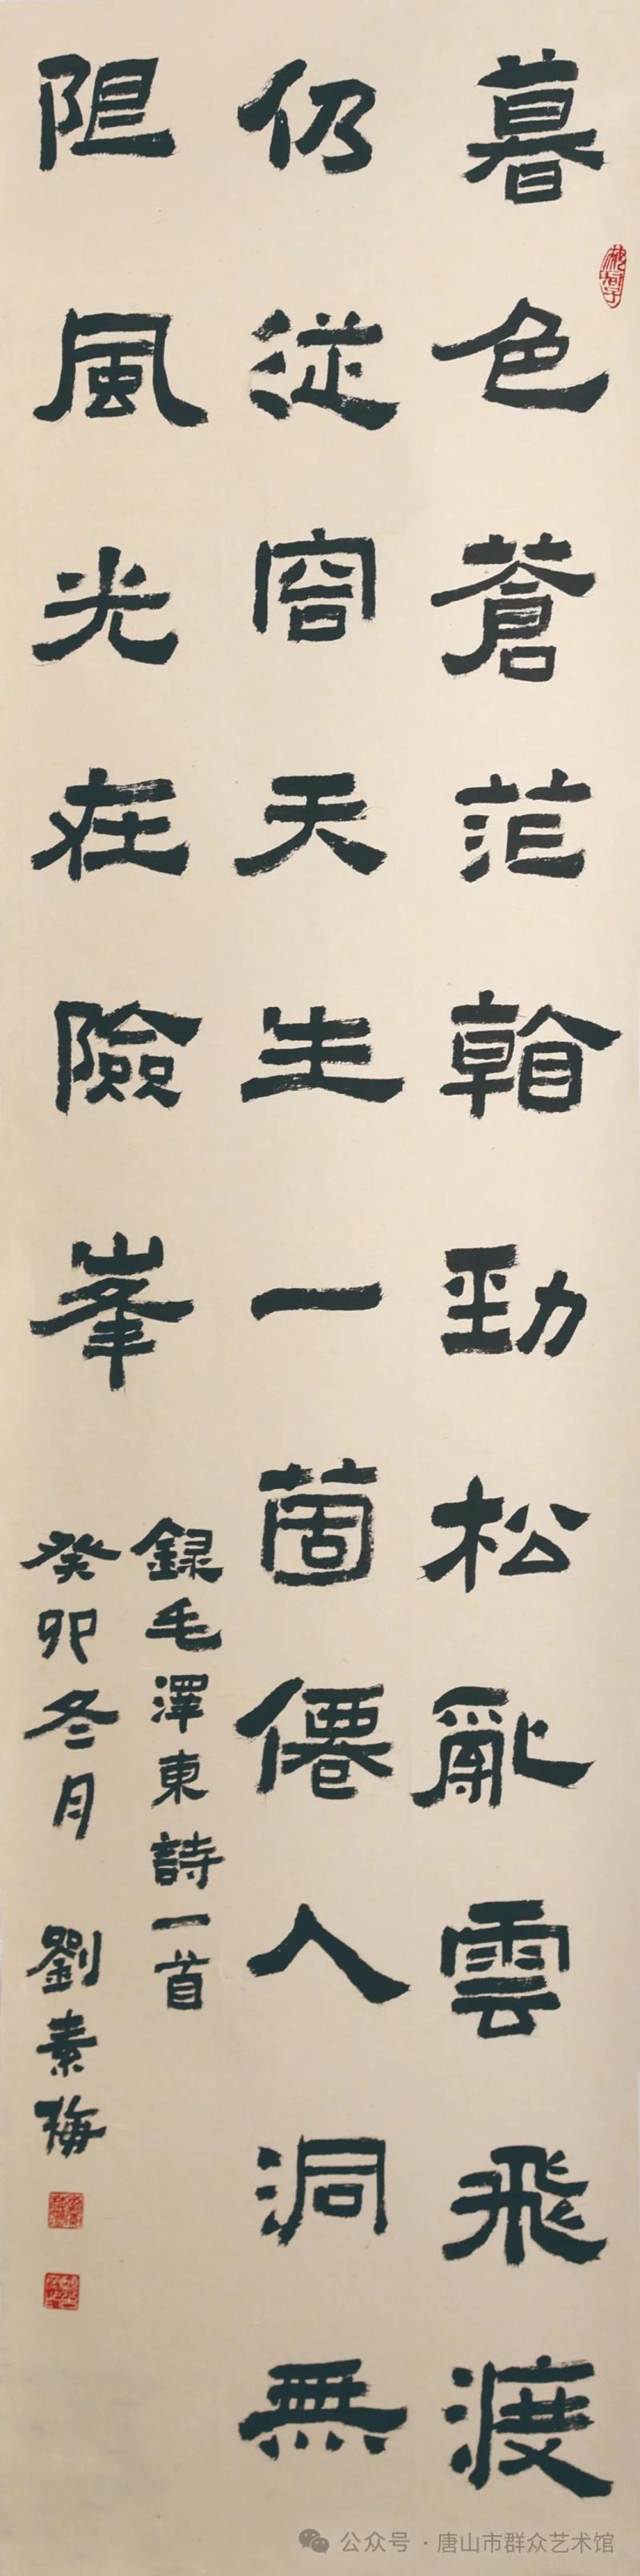 暮色蒼茫看勁松亂雲飛渡
仍從容天生一箇僊人洞無
阻風光在險峯
録毛澤東詩一首
癸卯冬月 劉素梅
公众号 · 唐山市群众艺术馆